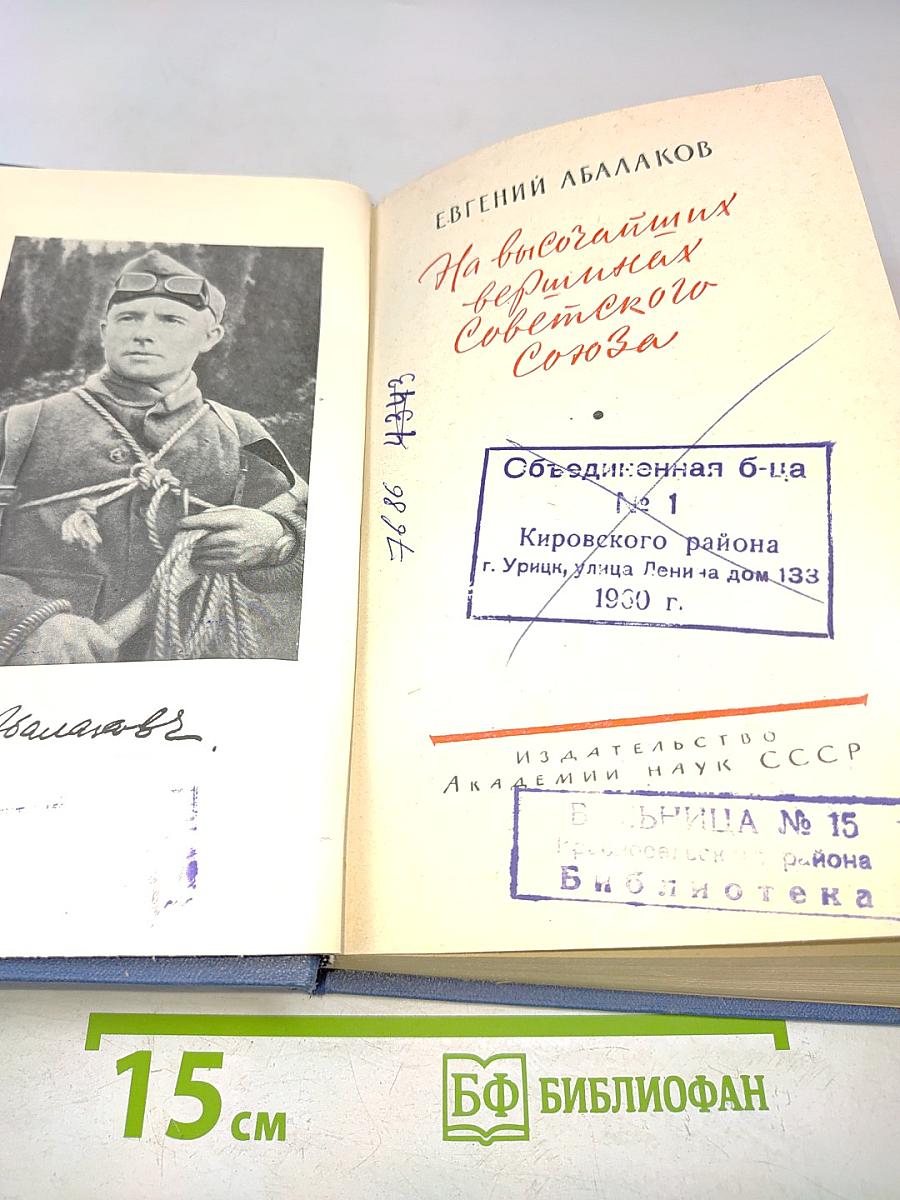 ЕВГЕНИЙ АБАЛАКОВ
На высочайших
вершинах
Советского
Союза
7686 4343
Объединенная б-ца
№ 1
Кировского района
г. Урицк, улица Ленина дом 133
1960 г.
ИЗДАТЕЛЬСТВО
АКАДЕМИИ НАУК СССР
БОЛЬНИЦА № 15
района
Библиотека
15 см
БФ БИБЛИОФАН